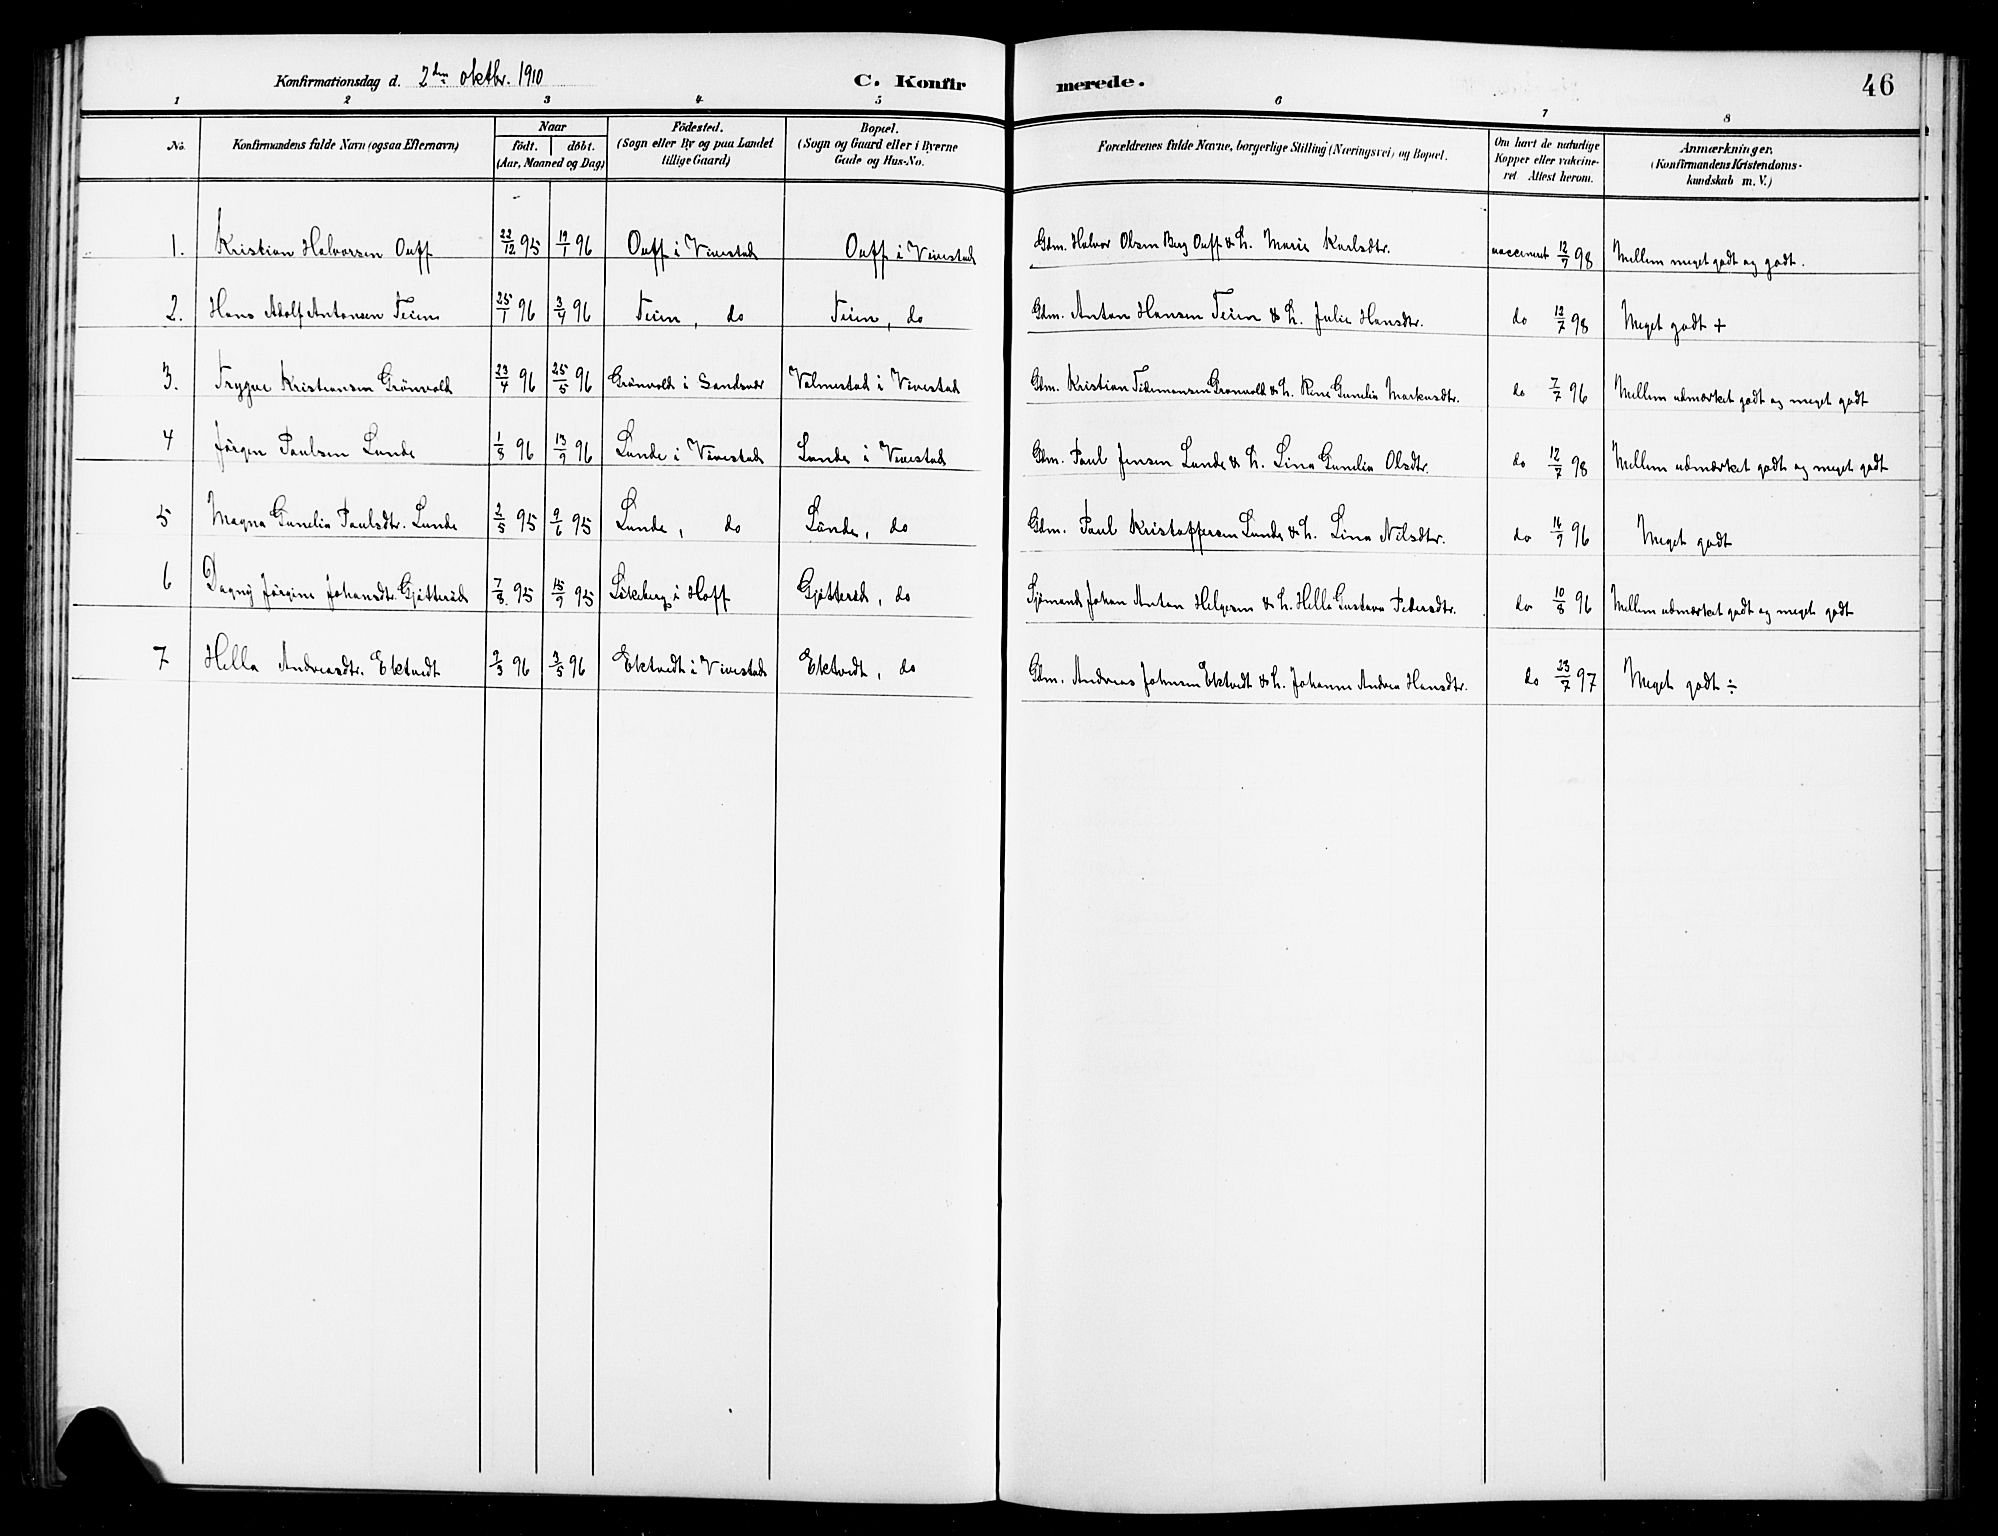 Konfirmationsdag d. 2den oktbr. 1910 C. Konfirmerede. 46
1 2 3 4 5 6 7 8
No. Konfirmandens fulde Navn (ogsaa Efternavn) Naar födt. döbt. (Aar, Maaned og Dag) Födested. (Sogn eller By og paa Landet tillige Gaard) Bopæl. (Sogn og Gaard eller i Byerne Gade og Hus-No. Forældrenes fulde Navne, borgerlige Stilling (Næringsvei) og Bopæl. Om havt de naturlige Kopper eller vakcineret Attest herom. Anmærkninger, (Konfirmandens Kristendomskundskab m. V.)
1. Kristian Halvorsen Ouff 22/12 95 19/1 96 Ouff i Vivestad Ouff i Vivestad Gdm. Halvor Olsen Berg Ouff & h. Marie Karlsdtr. vaccineret 12/7 98 Mellem meget godt og godt.
2. Hans Adolf Antonsen Teien 25/1 96 3/4 96 Teien, do Teien, do Gdm. Anton Hansen Teien & h. Julie Hansdtr. do 12/7 98 Meget godt +
3. Trygve Kristiansen Grönvold 23/4 96 25/5 96 Grönvold i Sandsvær Valmestad i Vivestad Gdm. Kristian Tidemansen Grönvold & h. Rine Gunelia Markusdtr. do 7/7 96 Mellem udmærket godt og meget godt
4 Jörgen Paulsen Lunde 1/8 96 13/9 96 Lunde i Vivestad Lunde i Vivestad Gdm. Paul Jensen Lunde & h. Lina Gunelia Olsdtr. do 12/7 98 Mellem udmærket godt og meget godt
5 Magna Gunelia Paulsdtr. Lunde 2/5 95 9/6 95 Lunde, do Lunde, do Gdm. Paul Kristoffersen Lunde & h. Lina Nilsdtr. do 16/9 96 Meget godt
6 Dagny Jörgine Johansdtr. Gjötteröd 7/8 95 15/9 95 i Hoff Gjötteröd, do Sjömand Johan Anton Helgesen & h. Hella Gustava Pedersdtr. do 10/8 96 Mellem udmærket godt og meget godt
7 Hella Andreasdtr. Ektvedt 2/3 96 3/5 96 Ektvedt i Vivestad Ektvedt, do Gdm. Andreas Johnsen Ektvedt & h. Johanne Andrea Hansdtr. do 23/7 97 Meget godt ÷